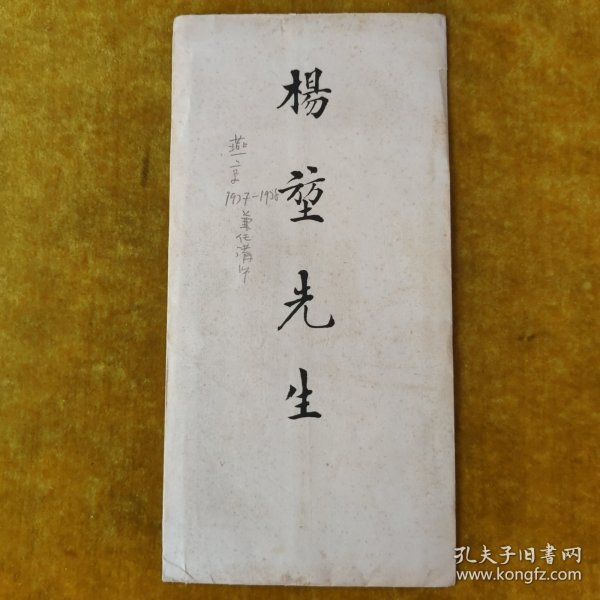 楊堃先生
燕京
1937-1938
兼任講师
孔夫子旧书网
www.kongfz.com